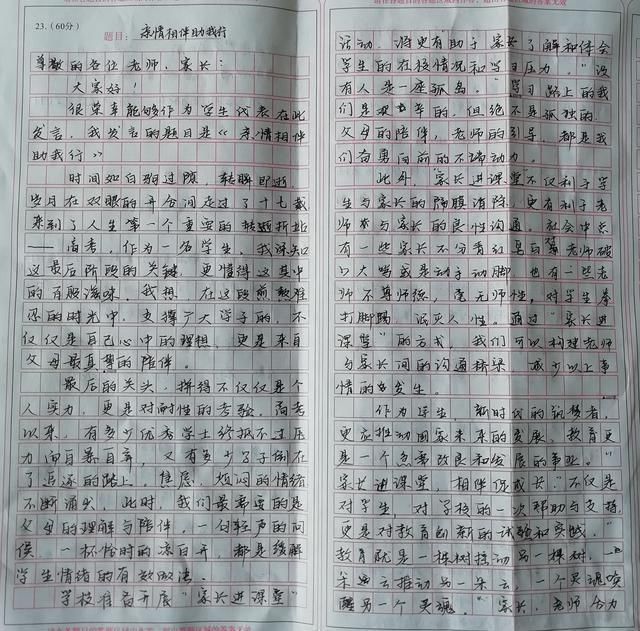 23.(60分)
题目：亲情相伴助我行
尊敬的各位老师、家长：
大家好！
很荣幸能够作为学生代表在此
发言，我发言的题目是《亲情相伴
助我行》
时间如白驹过隙，转瞬即逝，
岁月在双眼的开合间走过了十七载
来到了人生第一个重要的转折
——高考，作为一名学生，我深知
这最后阶段的关键，更懂得这其中
的百般滋味。我想，在这段煎熬难
忍的时光中，支撑广大学子的，不
仅仅是自己心中的理想，更是来自
父母最真挚的陪伴。
最后的关头，拼得不仅仅是个
人实力，更是对耐性的考验。高考
以来，有多少优秀学士终抵不过压
力而自暴自弃，又有多少子倒在
了追逐的路上，焦虑、烦闷的情绪
不断涌头，此时，我们最需要的是
父母的理解与陪伴，一句轻声的问
候，一杯恰时的凉白开，都是缓解
学生情绪的有效做法。
学校准备开展“家长进课堂”
活动，将更有助于家长了解和体会
学生的在校情况和学习压力。“没
有人是一座孤岛。”学习路上的我
们是艰辛的，但绝不是孤独的。
父母的陪伴，老师的引导，都是我
们奋勇向前的不竭动力。
此外，“家长进课堂不仅利于学
生与家长的隔膜消除，更有利于老
师与家长的良性沟通。社会中总
有一些家长不分青红皂白对老师破
口大骂或是动手动脚，也有一些老
师不尊师德，毫无师性，对学生拳
打脚踢，泯灭人性。通过“家长进
课堂”的方式，我们可以构建老师
与家长间的沟通桥梁，减少以上事
情的发生。
作为学生，新时代的筑梦者，
更应推动国家未来的发展，教育更
是一个急需改良和发展的事业。“
家长进课堂，相伴促成长”不仅是
对学生，对学校的一次帮助与支持，
更是对教育创新的试验和实践。“
教育就是一棵树摇动另一棵树，一
朵云推动另一朵云，一个灵魂唤
醒另一个灵魂。”家长，老师合力